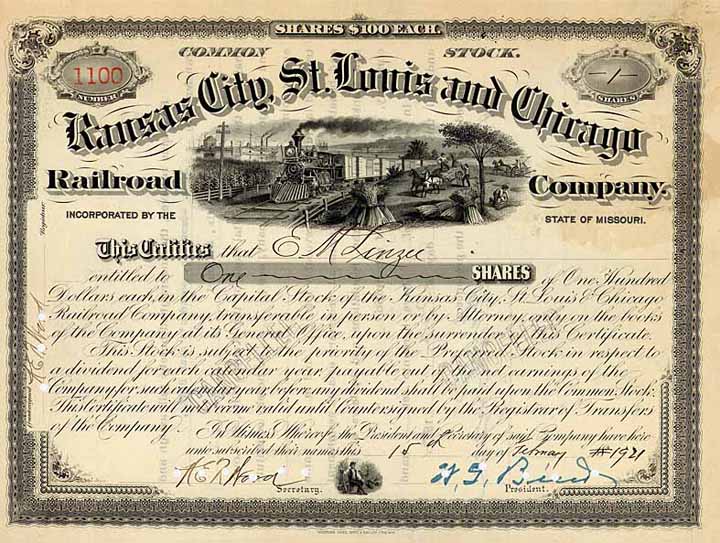 SHARES $100 EACH.
COMMON STOCK.
1100
NUMBER
-1-
SHARES
Kansas City, St. Louis and Chicago
Railroad Company.
INCORPORATED BY THE STATE OF MISSOURI.
This Certifies that E M Linzee
entitled to One SHARES of One Hundred
Dollars each in the Capital Stock of the Kansas City, St. Louis & Chicago
Railroad Company, transferable in person or by Attorney, only on the books
of the Company at its General Office, upon the surrender of this Certificate.
This Stock is subject to the priority of the Preferred Stock in respect to
a dividend for each calendar year, payable out of the net earnings of the
Company for such calendar year, before any dividend shall be paid upon the Common Stock:
This Certificate will not become valid until Countersigned by the Registrar of Transfers
of the Company.
In Witness Whereof, the President and Secretary of said Company have here
unto subscribed their names this 15 day of February 1921
Secretary.
President.
Registrar